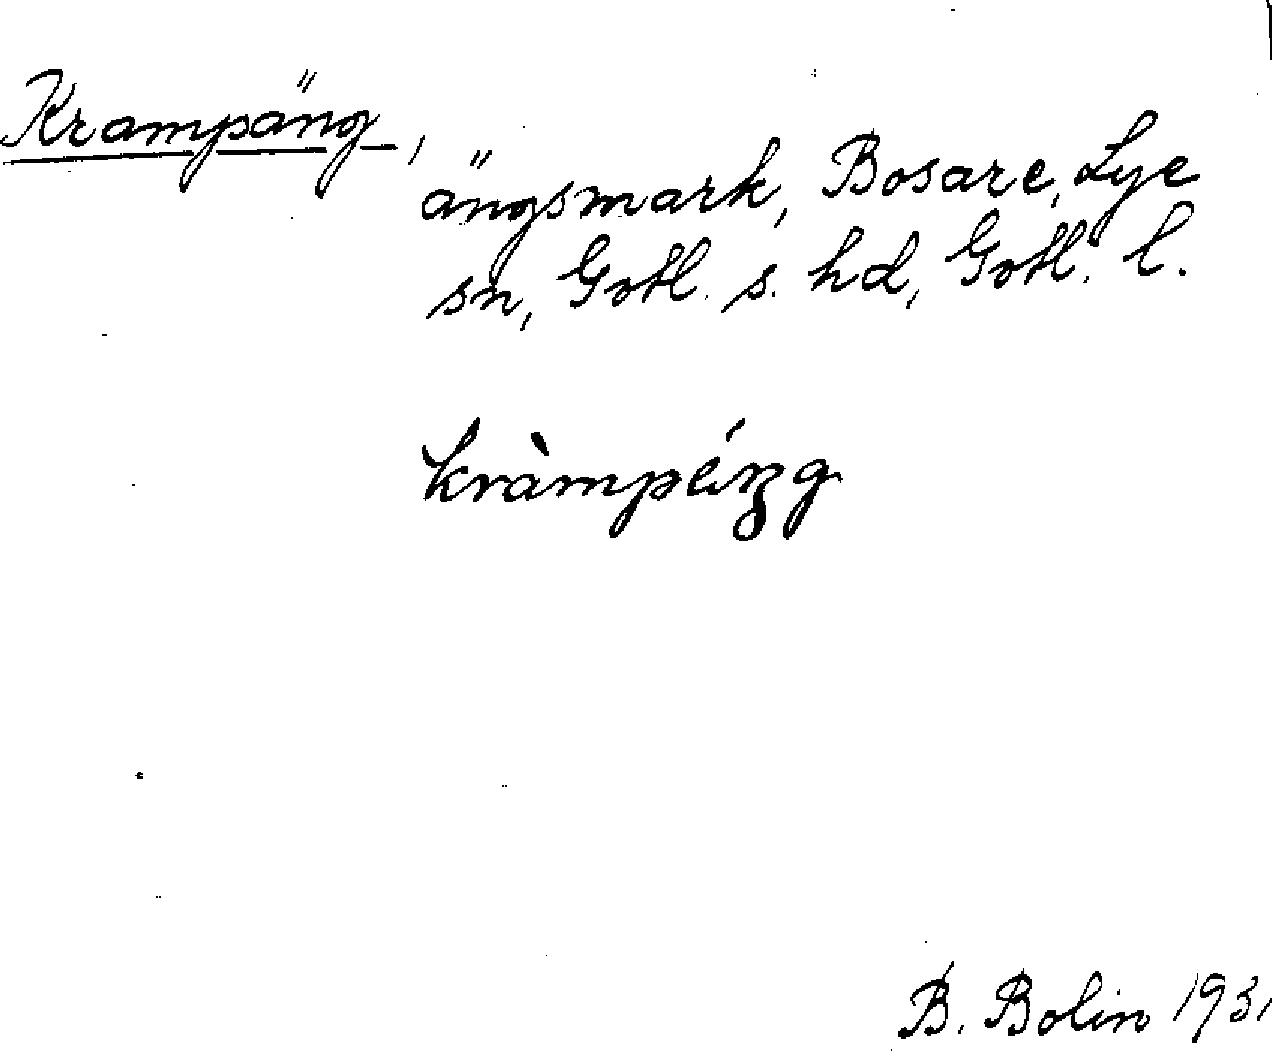 Krampäng,
ängsmark, Bosare, Lye
sn, Gotl. s. hd, Gotl. l.
kràmpéŋg
B. Bolin 1931